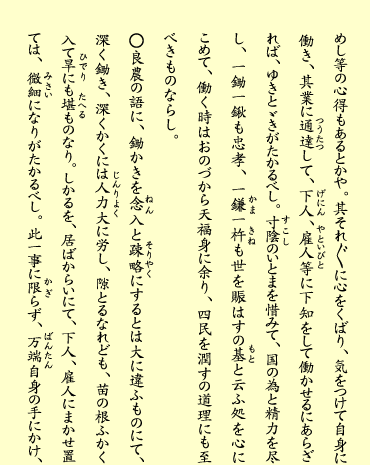 めし等の心得もあるとかや。其それ〲に心をくばり、気をつけて自身に
働き、其業に通達して、下人、雇人等に下知をして働かせるにあらざ
れば、ゆきとゞきがたかるべし。寸陰のいとまを惜みて、国の為と精力を尽
し、一鋤一鍬も忠孝、一鎌一杵も世を賑はすの基と云ふ処を心に
こめて、働く時はおのづから天福身に余り、四民を潤すの道理にも至
べきものならし。
〇良農の語に、鋤かきを念入と疎略にするとは大に違ふものにて、
深く鋤き、深くかくには人力大に労し、隙とるなれども、苗の根ふかく
入て旱にも堪ものなり。しかるを、居ばからいにて、下人、雇人にまかせ置
ては、微細になりがたかるべし。此一事に限らず、万端自身の手にかけ、